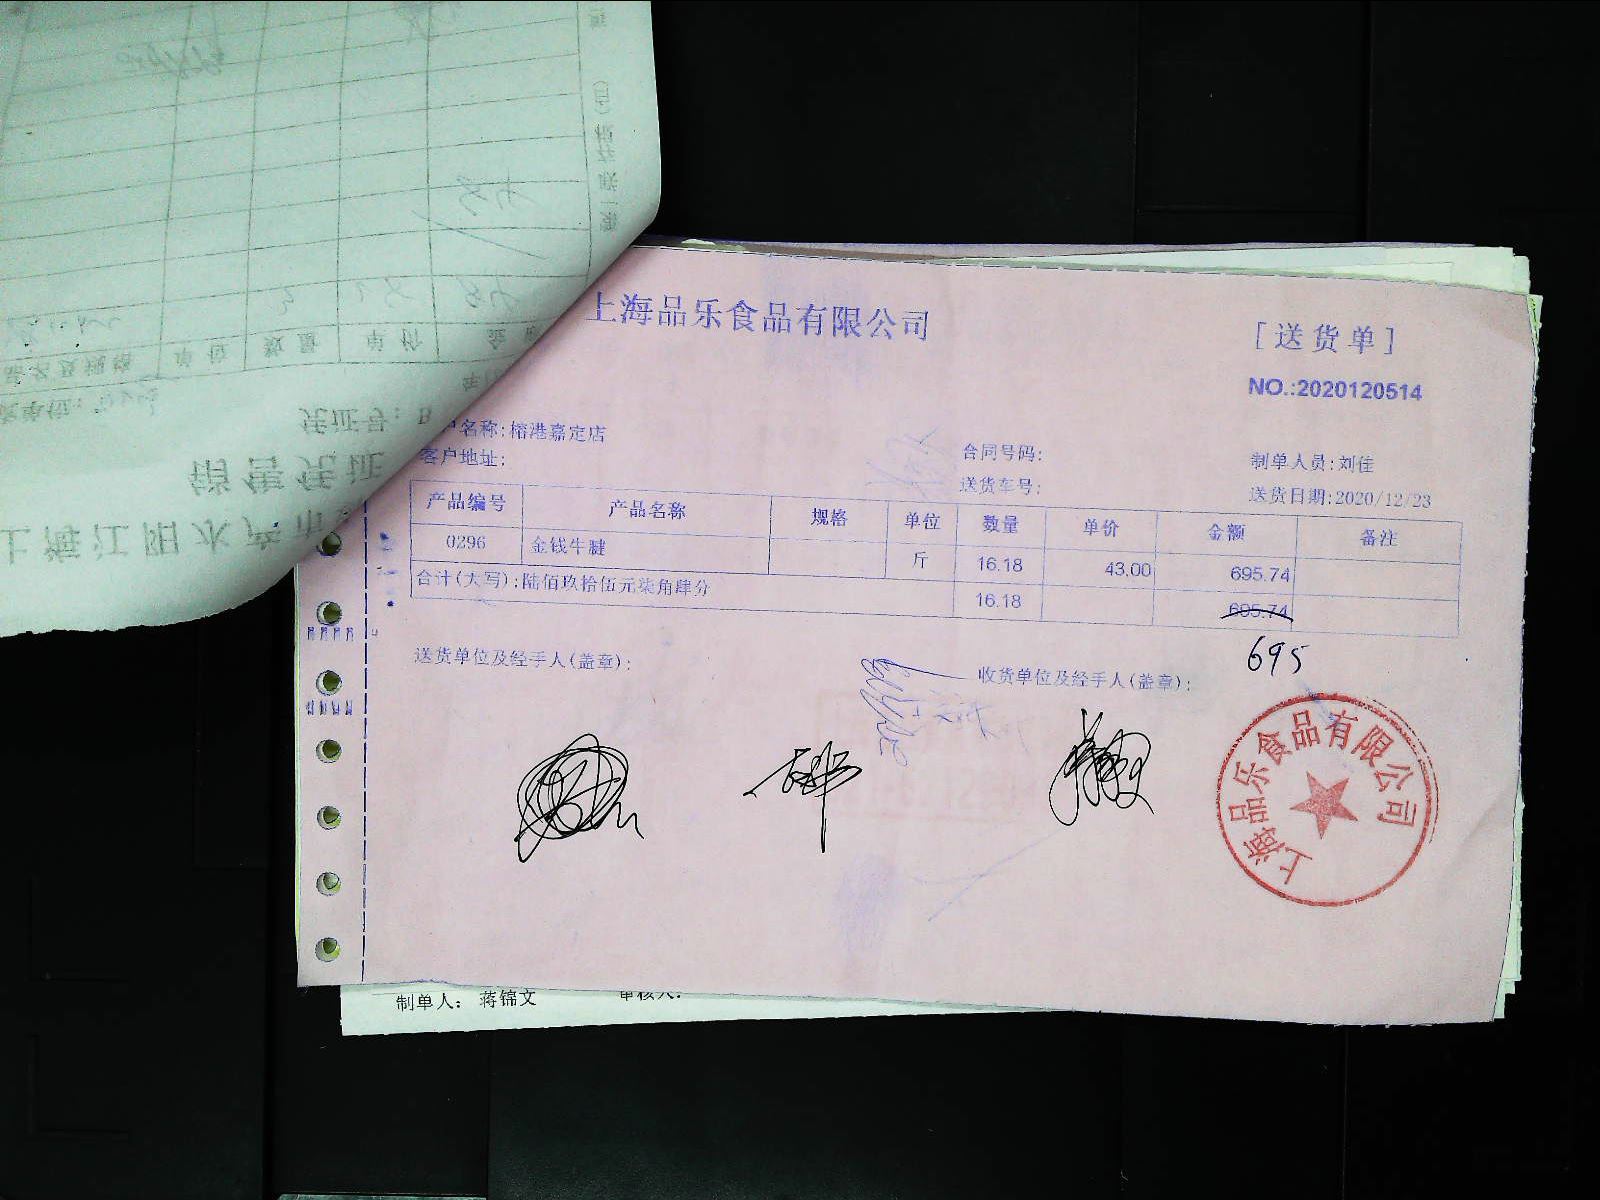 上海品乐食品有限公司
[送货单]
NO.:2020120514
户名称:榕港嘉定店
客户地址:
合同号码:
送货车号:
制单人员:刘佳
送货日期:2020/12/23
产品编号 产品名称 规格 单位 数量 单价 金额 备注
0296 金钱牛腱 斤 16.18 43.00 695.74
合计(大写):陆佰玖拾伍元柒角肆分 16.18 695.74
695
送货单位及经手人(盖章):
收货单位及经手人(盖章):
上海品乐食品有限公司
制单人: 蒋锦文
审核人:
上海江阳水产市
销售凭证
凭证号: B
品名及规格 单位 数量 单价 金